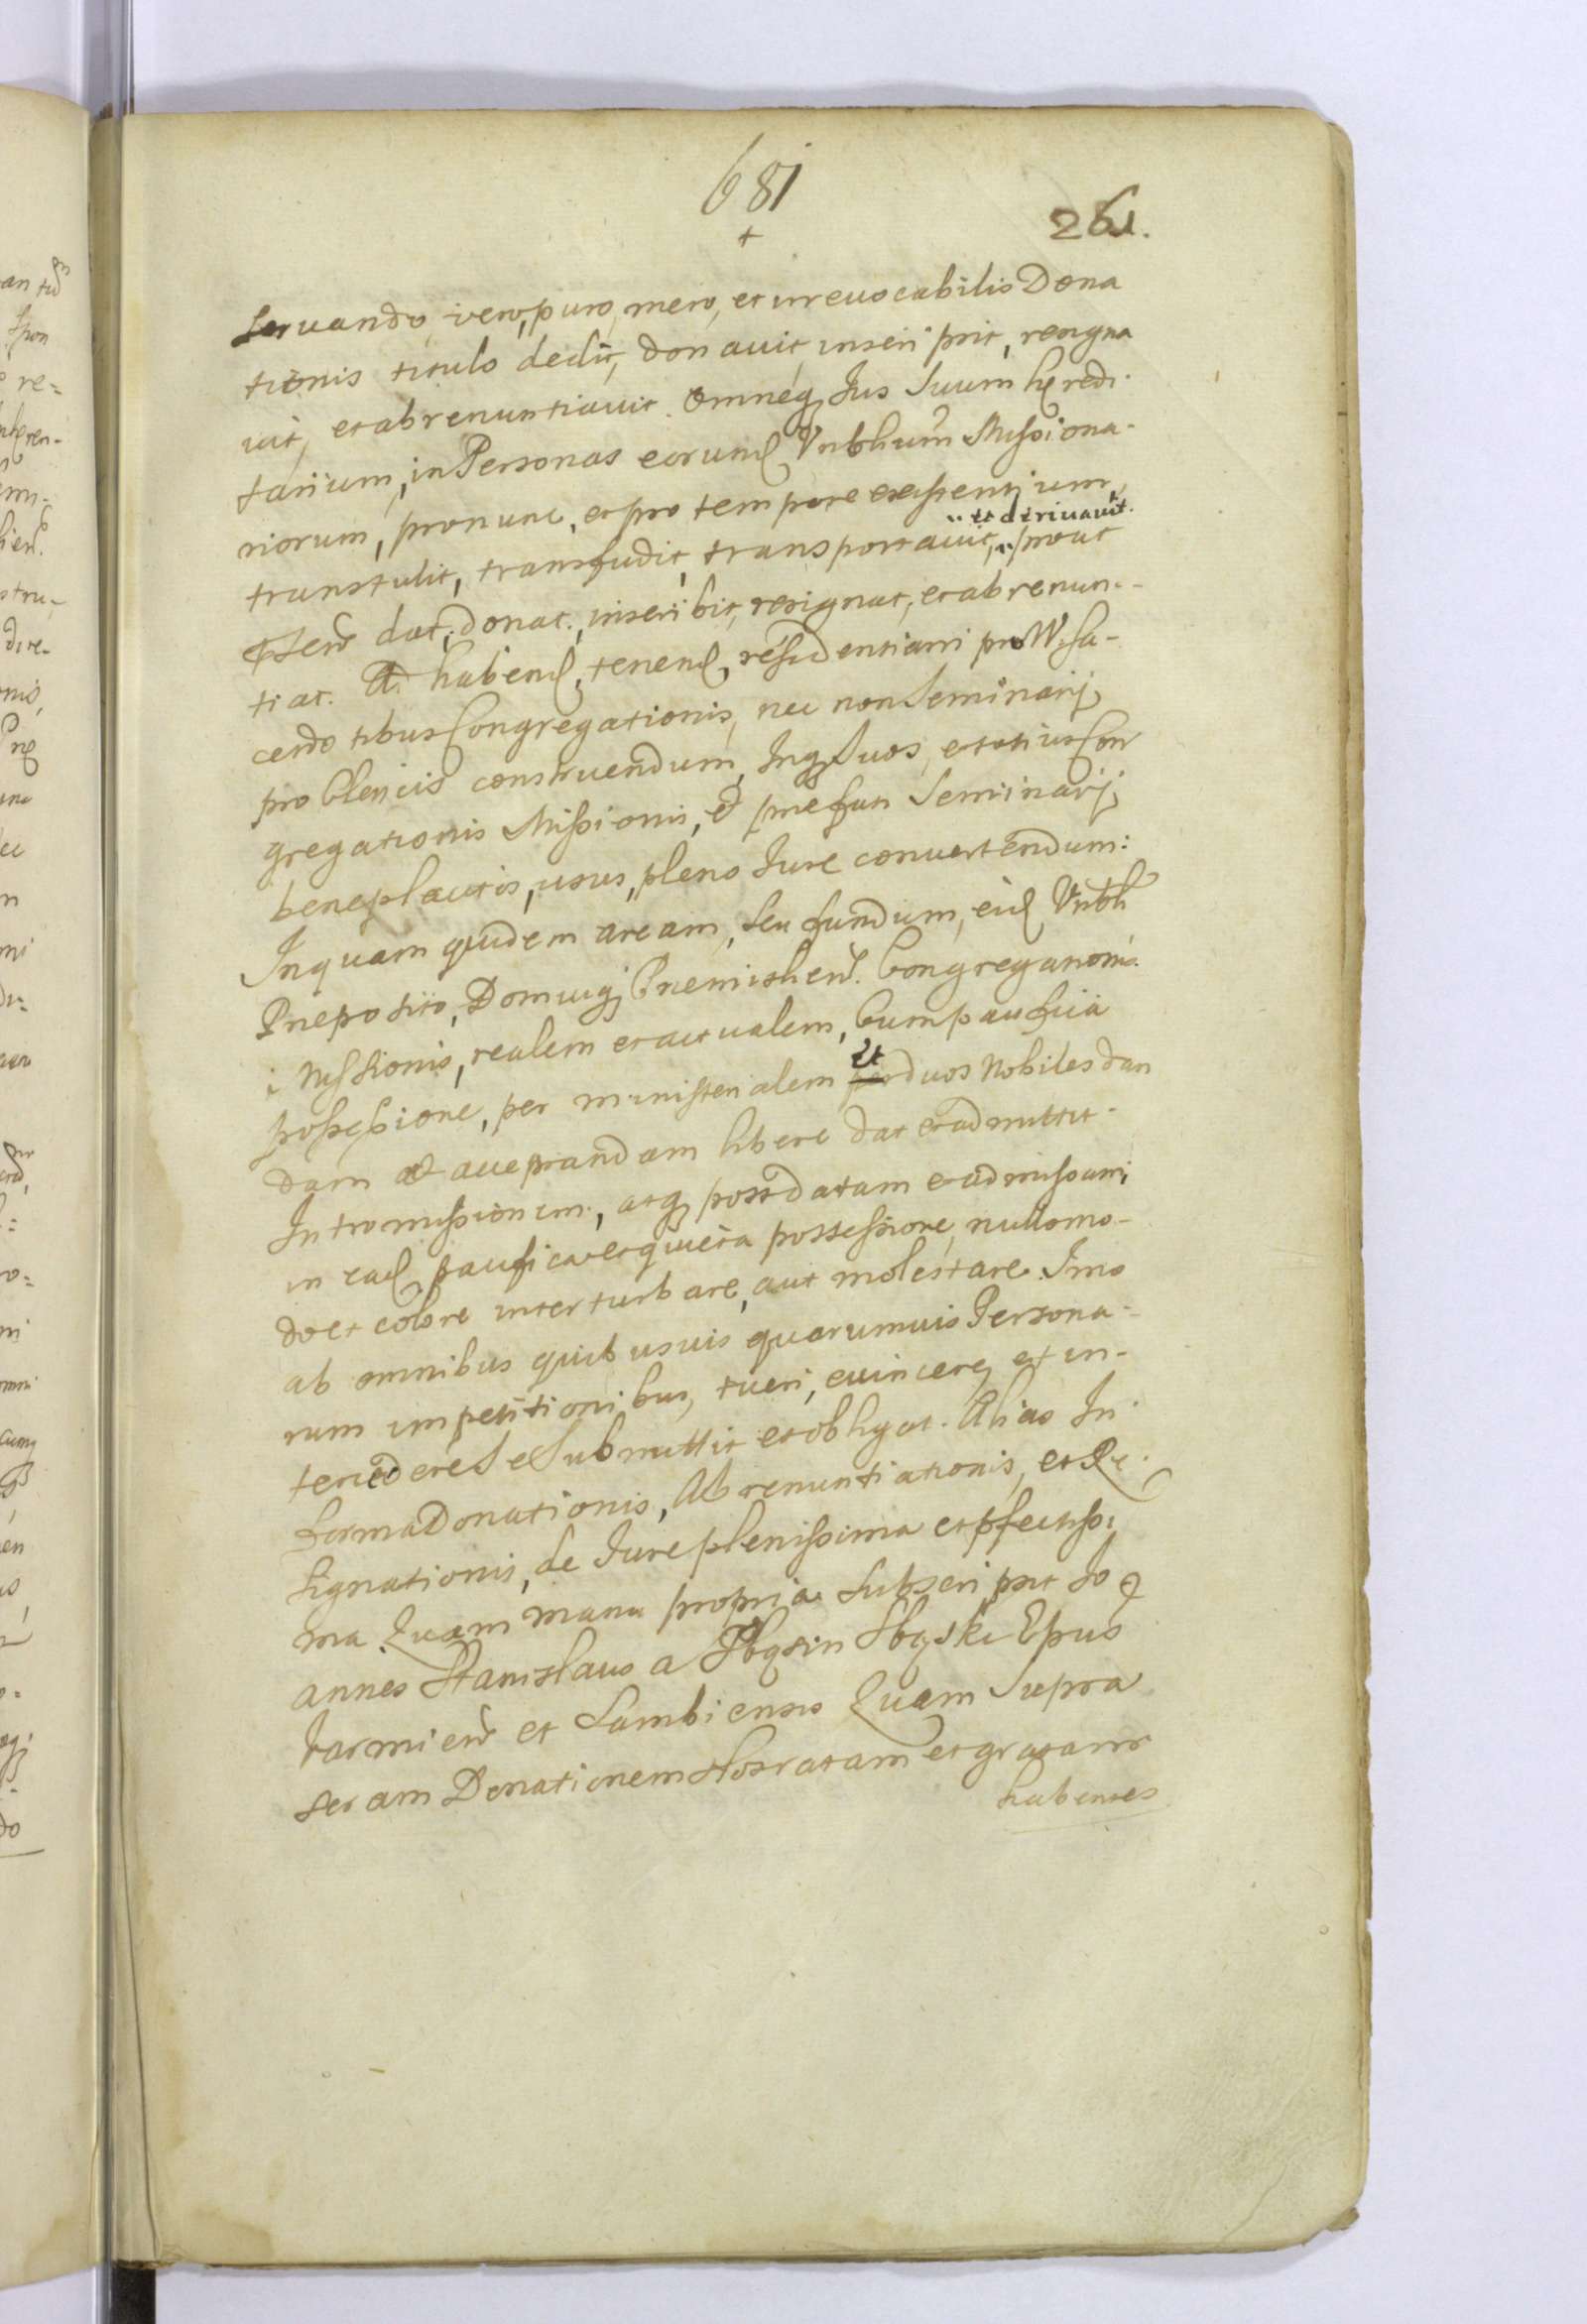 681
+
261.
Seruando, vero, puro, mero, et irreuocabilis Dona
tionis titulo dedit, donauit inscripsit, resigna
uit, et abrenuntiauit. Omneq Jus Suum hęredi-
tarium, in Personas eorund Vnblium Missiona-
riorum, pro nunc, et pro tempore existentium,
transtulit, transfudit, transportauit, et deriuauit. prout
dat, donat, inscribit, resignat, et abrenun-
tiat. Ad habend, tenend, residentiam pro W. Sa-
cerdotibus Congregationis, nec non Seminarij
pro Clericis construendum, Inq Suos, et totius Con
gregationis Missionis, et præfati Seminarij
beneplacitos, usus, pleno Jure conuertendum:
In quam quidem aream, seu fundum, eid Vnbli
Præposito, Domuiq Præmislien. Congregationis
Missionis, realem et actualem, Cum pacifica
possessione, per ministerialem Et duos Nobiles dan
dam ac acceptandam libere dat et admittit
Intromissionem, atq post datam et admissam,
in ead pacifica et quieta possessione, nullo mo-
do et colore interturbare, aut molestare. Imo
ab omnibus quibusuis quarumuis Persona-
rum impetitionibus, tueri, euincere, et in-
tercedere Se Submittit et obligat. Alias In
forma Donationis, Abrenuntiationis, et Re
signationis, de Jure plenissima et pfectissi
ma Quam manu propria Subscripsit Jo
annes Stanislaus a Zbąszin Zbąski Epus
Varmien et Sambiensis Quam Supra
Donationem Nos ratam et gratam
habentes